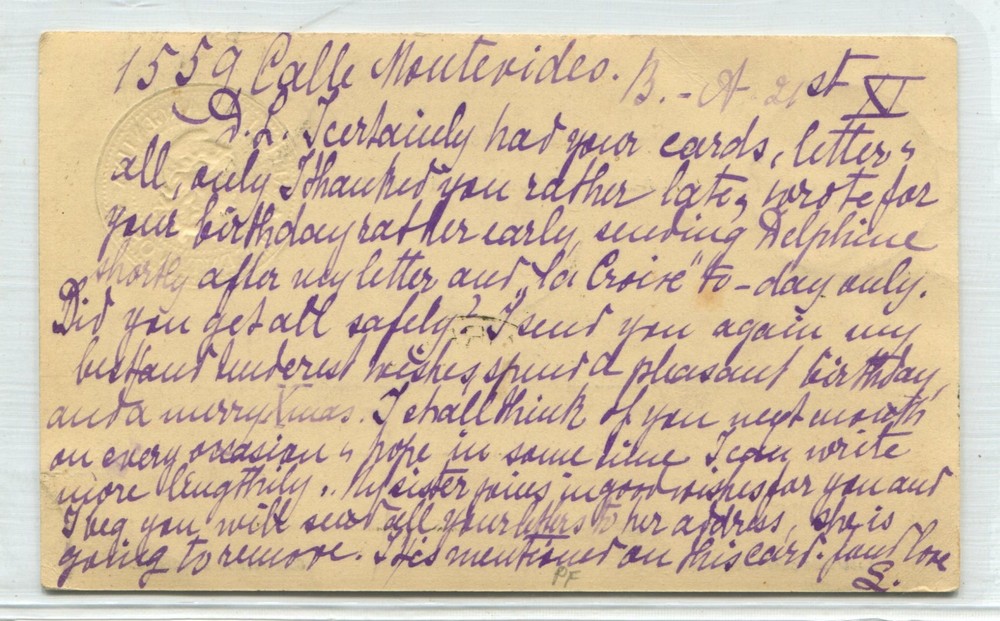 1559 Calle Montevideo. B.-A 21st XI
D.L. I certainly had your cards, letter &
all, only I thanked you rather late & wrote for
your birthday rather early, sending Delphine
shortly after my letter and "la Croix" to-day only.
Did you get all safely? I send you again my
best and tenderest wishes, spend a pleasant birthday,
and a merry Xmas. I shall think of you next month
on every occasion & hope in some time I can write
more lengthily. My sister joins in good wishes for you and
I beg you will send all your letters to her address, she is
going to remove. It is mentioned on this card. fond love
S.
PF